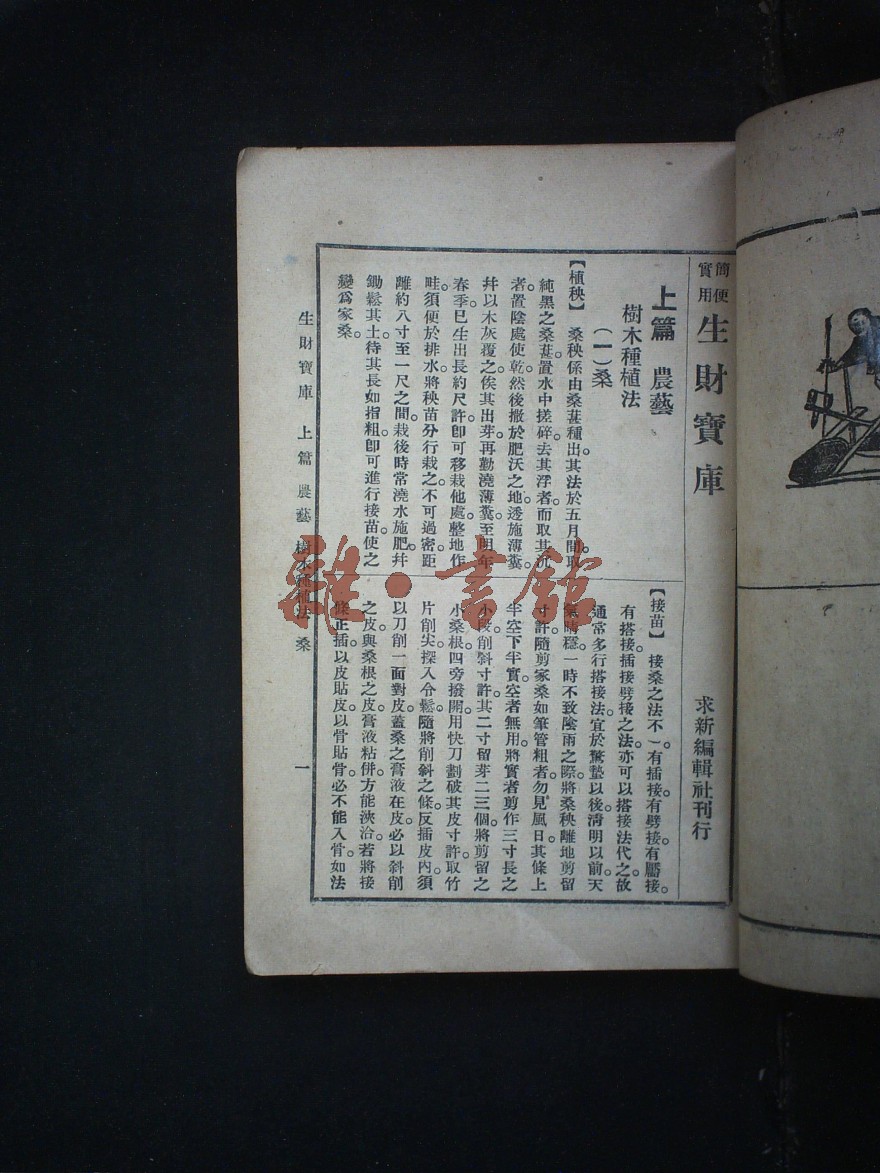 簡便
實用
生財寶庫
求新編輯社刊行
上篇 農藝
樹木種植法
(一)桑
【植秧】 桑秧係由桑葚種出。其法於五月間取
純黑之桑葚。置水中搓碎。去其浮者。而取其沉
者。置陰處使乾。然後撒於肥沃之地。透施薄糞。
幷以木灰覆之。俟其出芽。再勤澆薄糞。至明年
春季。已生出長約尺許。卽可移栽他處。整地作
畦。須便於排水。將秧苗分行栽之。不可過密。距
離約八寸至一尺之間。栽後時常澆水施肥。幷
鋤鬆其土。待其長如指粗。卽可進行接苗。使之
變爲家桑。
【接苗】 接桑之法不一。有插接。有劈接。有靨接。
有搭接。插接劈接之法。亦可以搭接法代之。故
通常多行搭接法。宜於驚蟄以後。清明以前。天
氣晴穩。一時不致陰雨之際。將桑秧離地剪留
寸許。隨剪家桑如筆管粗者。勿見風日。其條上
半空下半實。空者無用。將實者剪作三寸長之
小段。削斜寸許。其二寸留芽二三個。將剪留之
小桑根。四旁撥開。用快刀劃破其皮寸許。取竹
片削尖。探入令鬆。隨將削斜之條。反插皮內。須
以刀削一面對皮。蓋桑之膏液在皮。必以斜削
之皮。與桑根之皮。膏液粘併。方能浹洽。若將接
條正插。以皮貼皮。以骨貼骨。必不能入骨。如法
生財寶庫 上篇 農藝 樹木種植法 桑 一
雜·書館